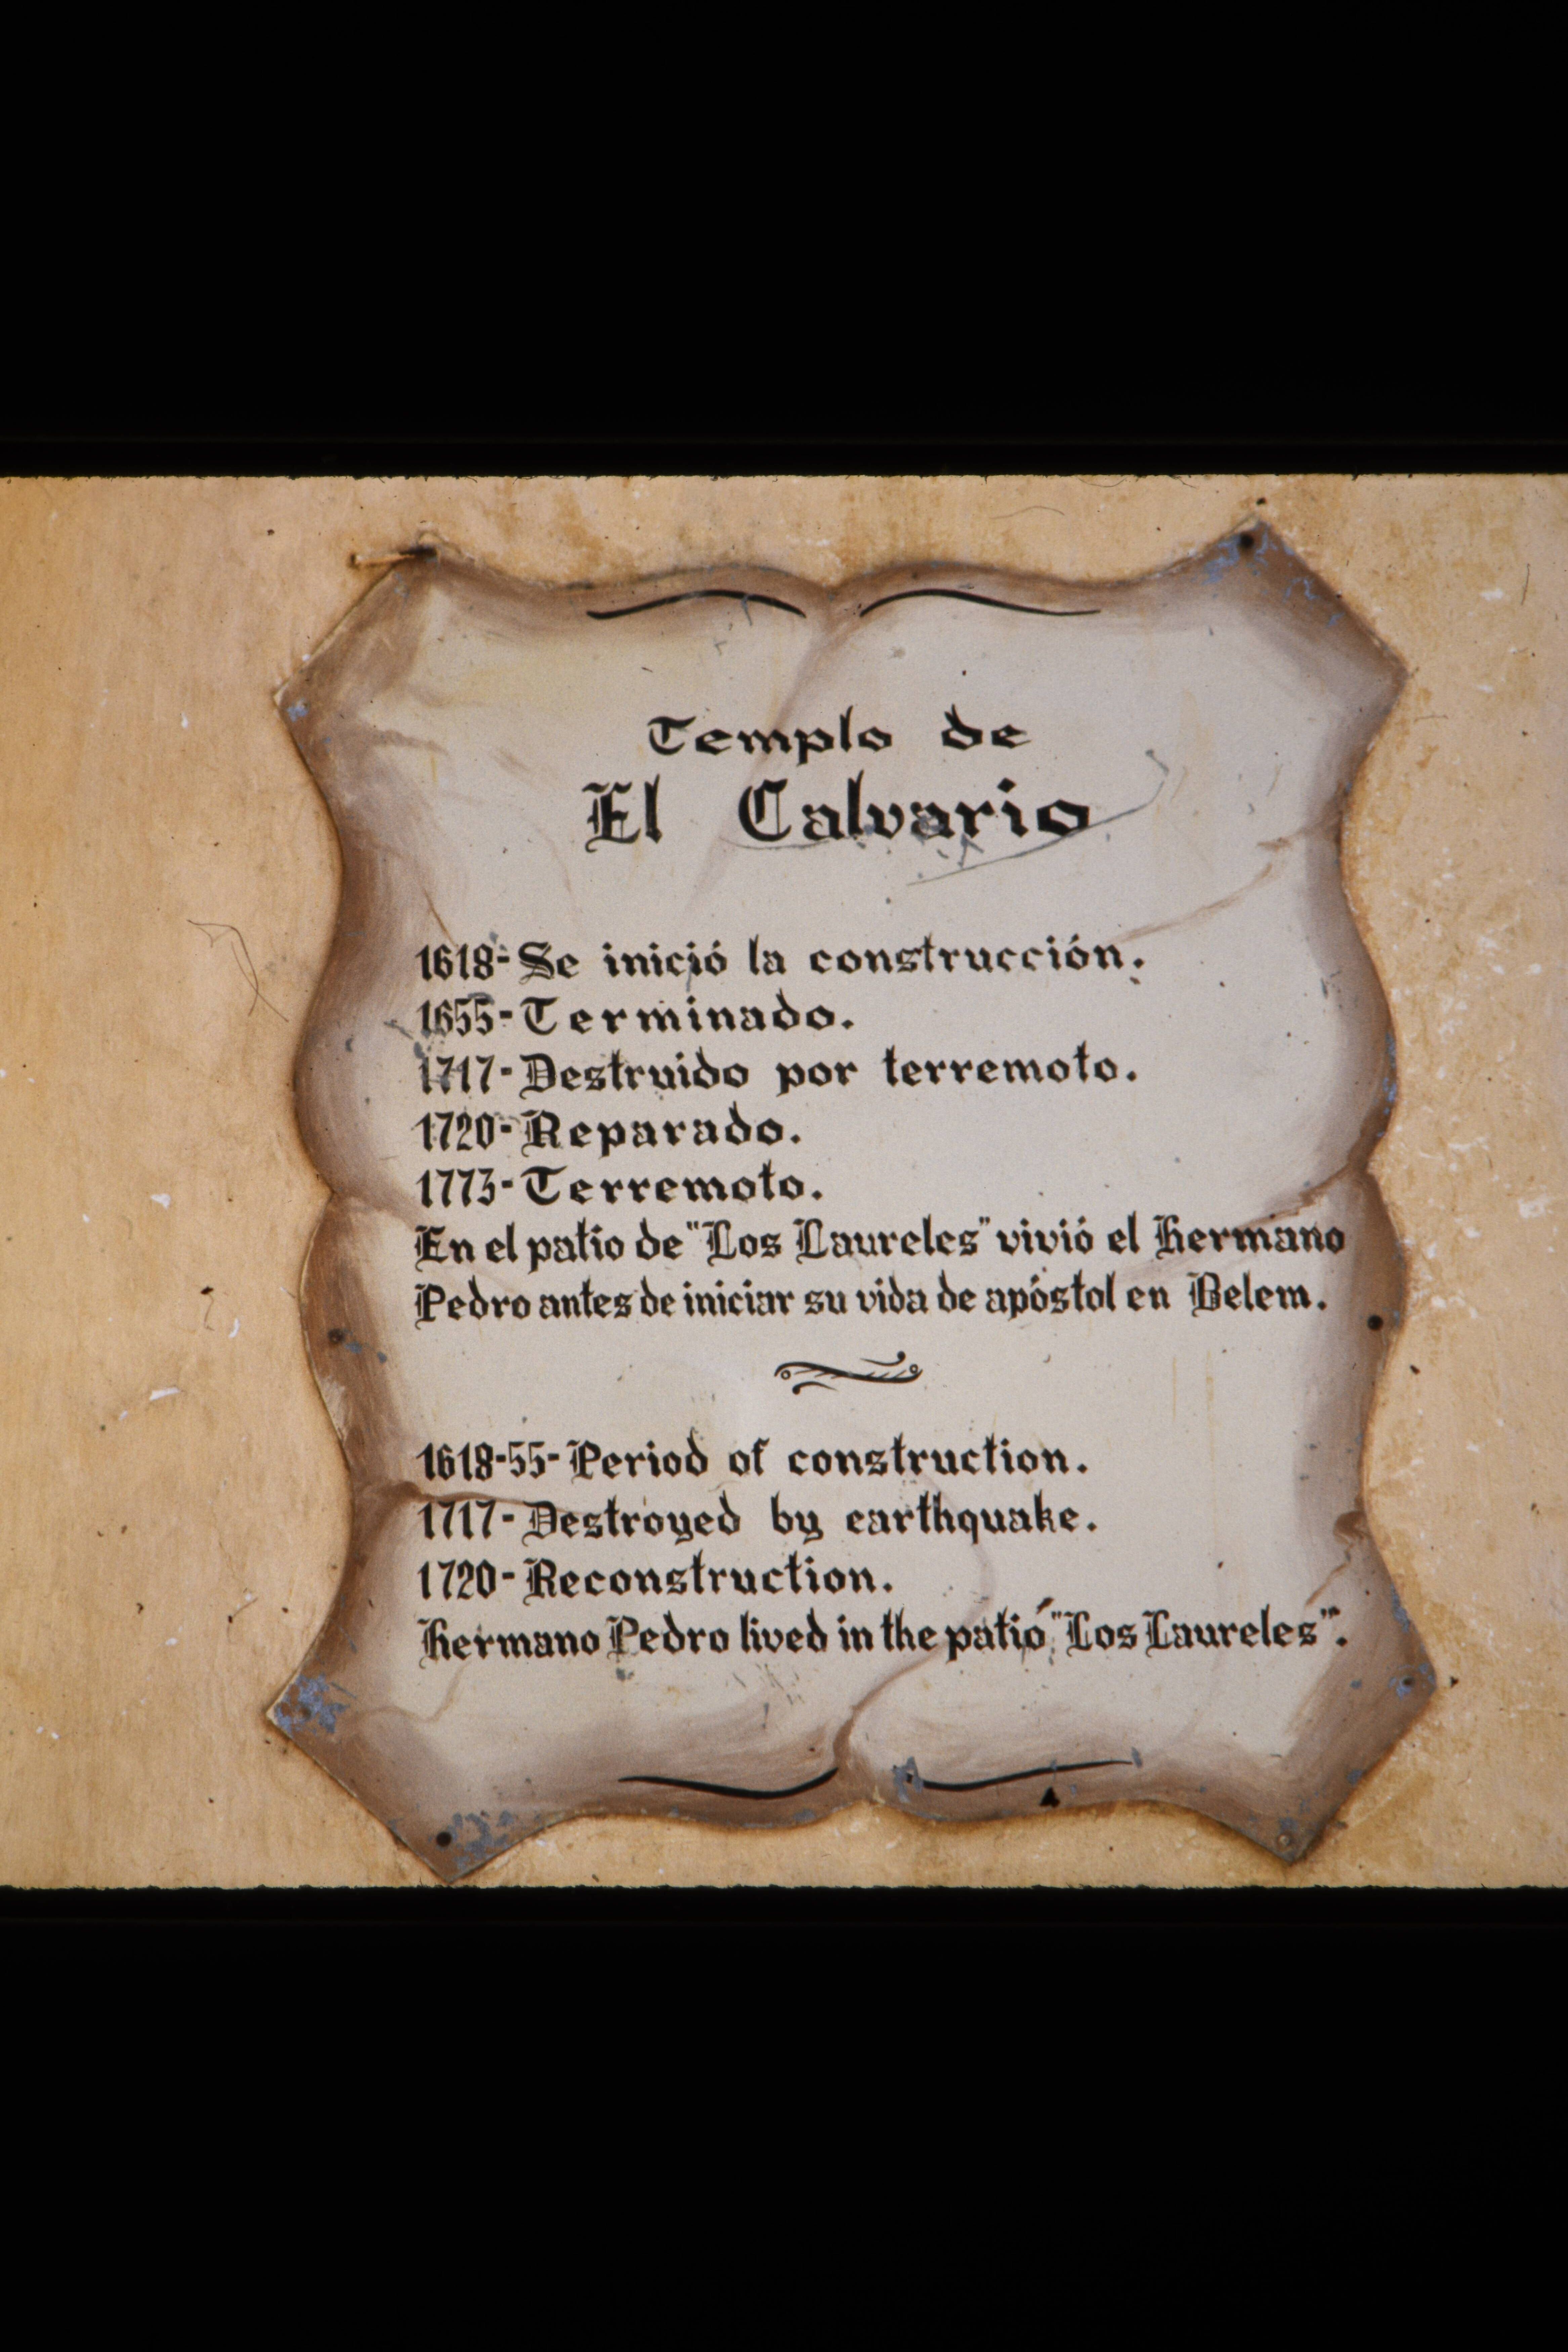 Templo de
El Calvario
1618-Se inició la construcción.
1655-Terminado.
1717-Destruido por terremoto.
1720-Reparado.
1773-Terremoto.
En el patio de "Los Laureles" vivió el hermano
Pedro antes de iniciar su vida de apóstol en Belem.
1618-55-Period of construction.
1717-Destroyed by earthquake.
1720-Reconstruction.
hermano Pedro lived in the patio "Los Laureles".